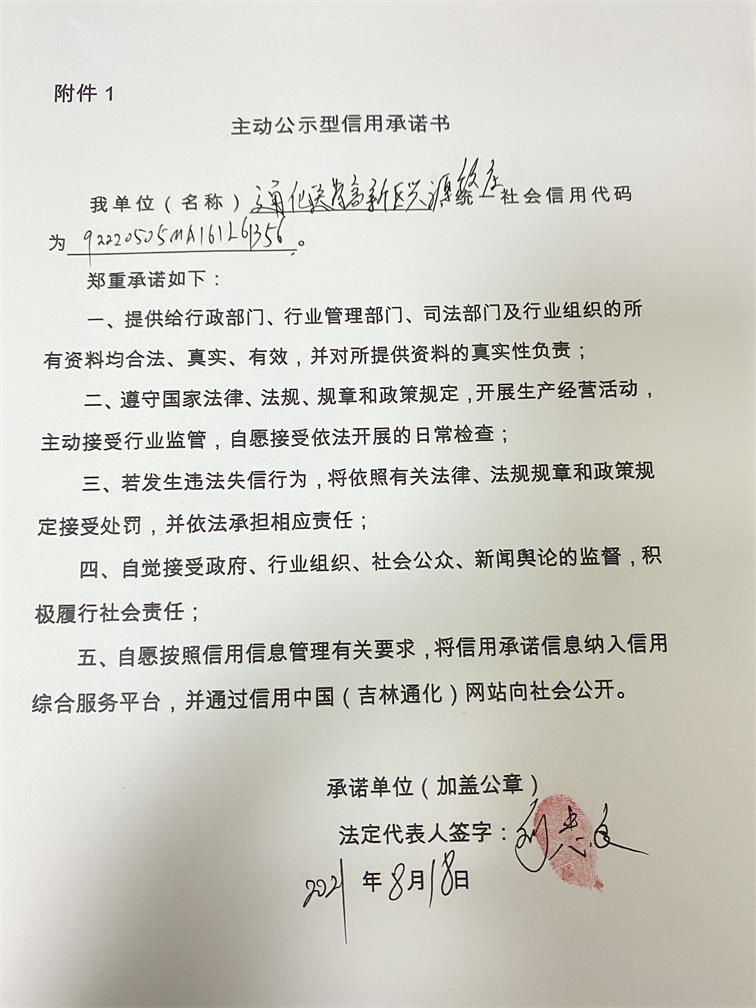 附件1
主动公示型信用承诺书
我单位（名称）通化医药高新区兴源 社会信用代码
为 92220505MA161L6356 。
郑重承诺如下：
一、提供给行政部门、行业管理部门、司法部门及行业组织的所
有资料均合法、真实、有效，并对所提供资料的真实性负责；
二、遵守国家法律、法规、规章和政策规定，开展生产经营活动，
主动接受行业监管，自愿接受依法开展的日常检查；
三、若发生违法失信行为，将依照有关法律、法规规章和政策规
定接受处罚，并依法承担相应责任；
四、自觉接受政府、行业组织、社会公众、新闻舆论的监督，积
极履行社会责任；
五、自愿按照信用信息管理有关要求，将信用承诺信息纳入信用
综合服务平台，并通过信用中国（吉林通化）网站向社会公开。
承诺单位（加盖公章）
法定代表人签字：
2021年8月18日